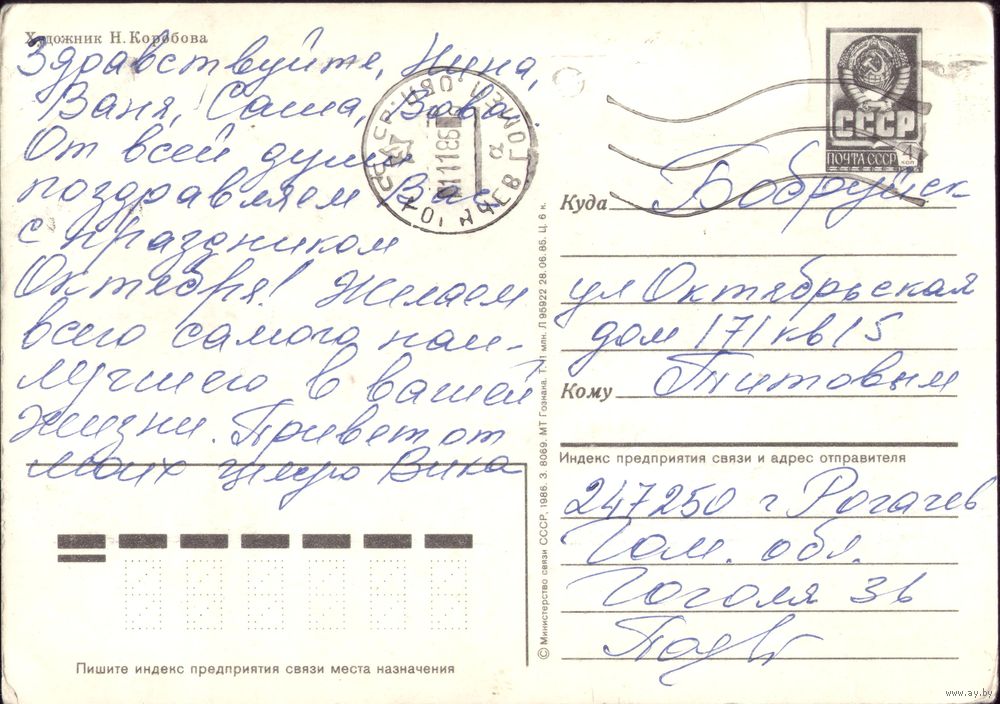 Художник Н. Коробова
Здравствуйте, Нина,
Ваня, Саша, Вова.
От всей души
поздравляем Вас
с праздником
Октября! Желаем
всего самого наи-
лучшего в вашей
жизни. Привет от
моих целую Вика
СССР
ПОЧТА СССР
4 коп
Куда Бобруйск
ул Октябрьская
дом 171 кв 15
Кому Титовым
Индекс предприятия связи и адрес отправителя
247250 г Рогачев
Гом. обл.
Гоголя 3в
Пишите индекс предприятия связи места назначения
© Министерство связи СССР, 1986. З. 8069. МТ Гознака. Т. 11 млн. Л 95922 28.06.85. Ц. 6 к.
www.ay.by